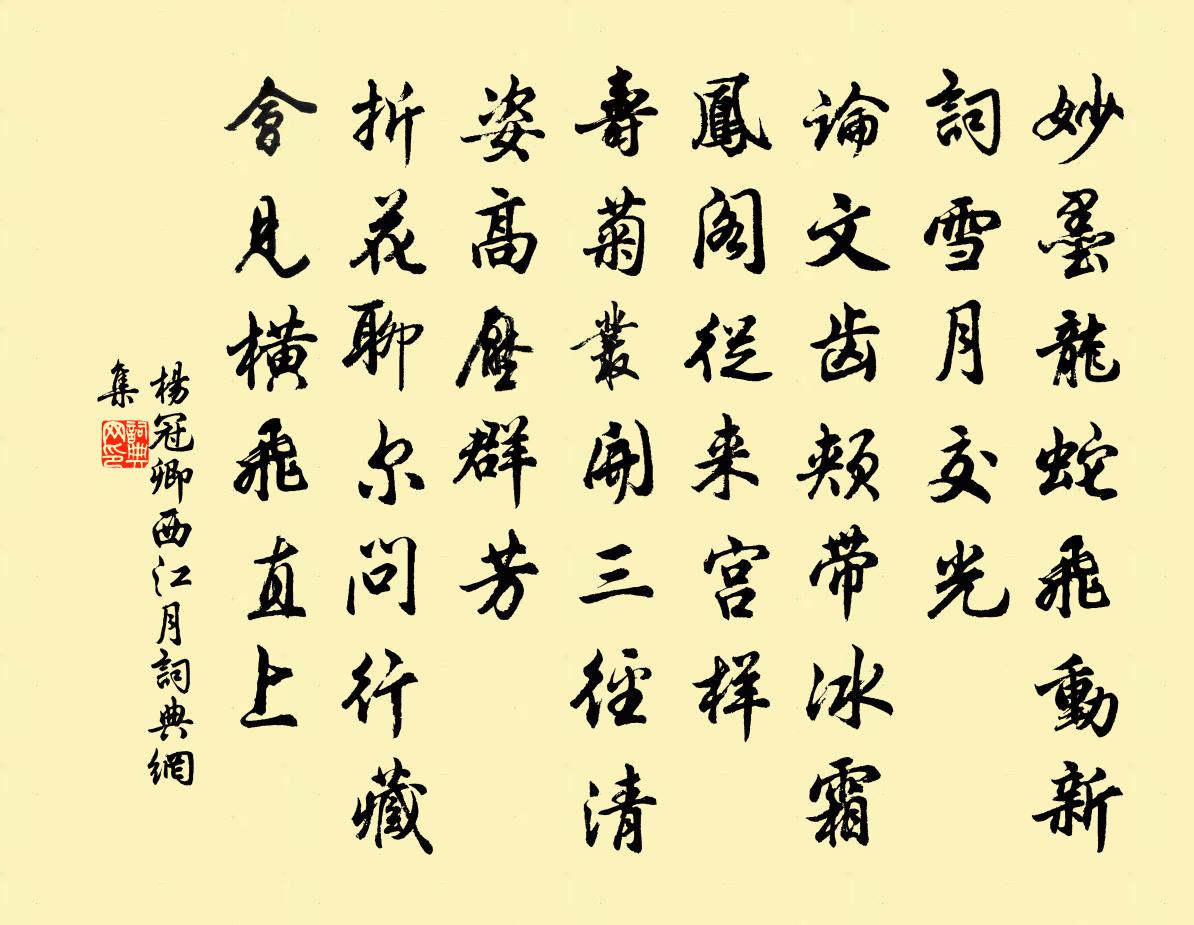 妙墨龍蛇飛動新
詞雪月交光
论文齿颊带冰霜
鳳阁從来宫样
壽菊叢開三徑清
姿高壓群芳
折花聊尔问行藏
會見橫飛直上
楊冠卿西江月詞典網
集
詞典
网印